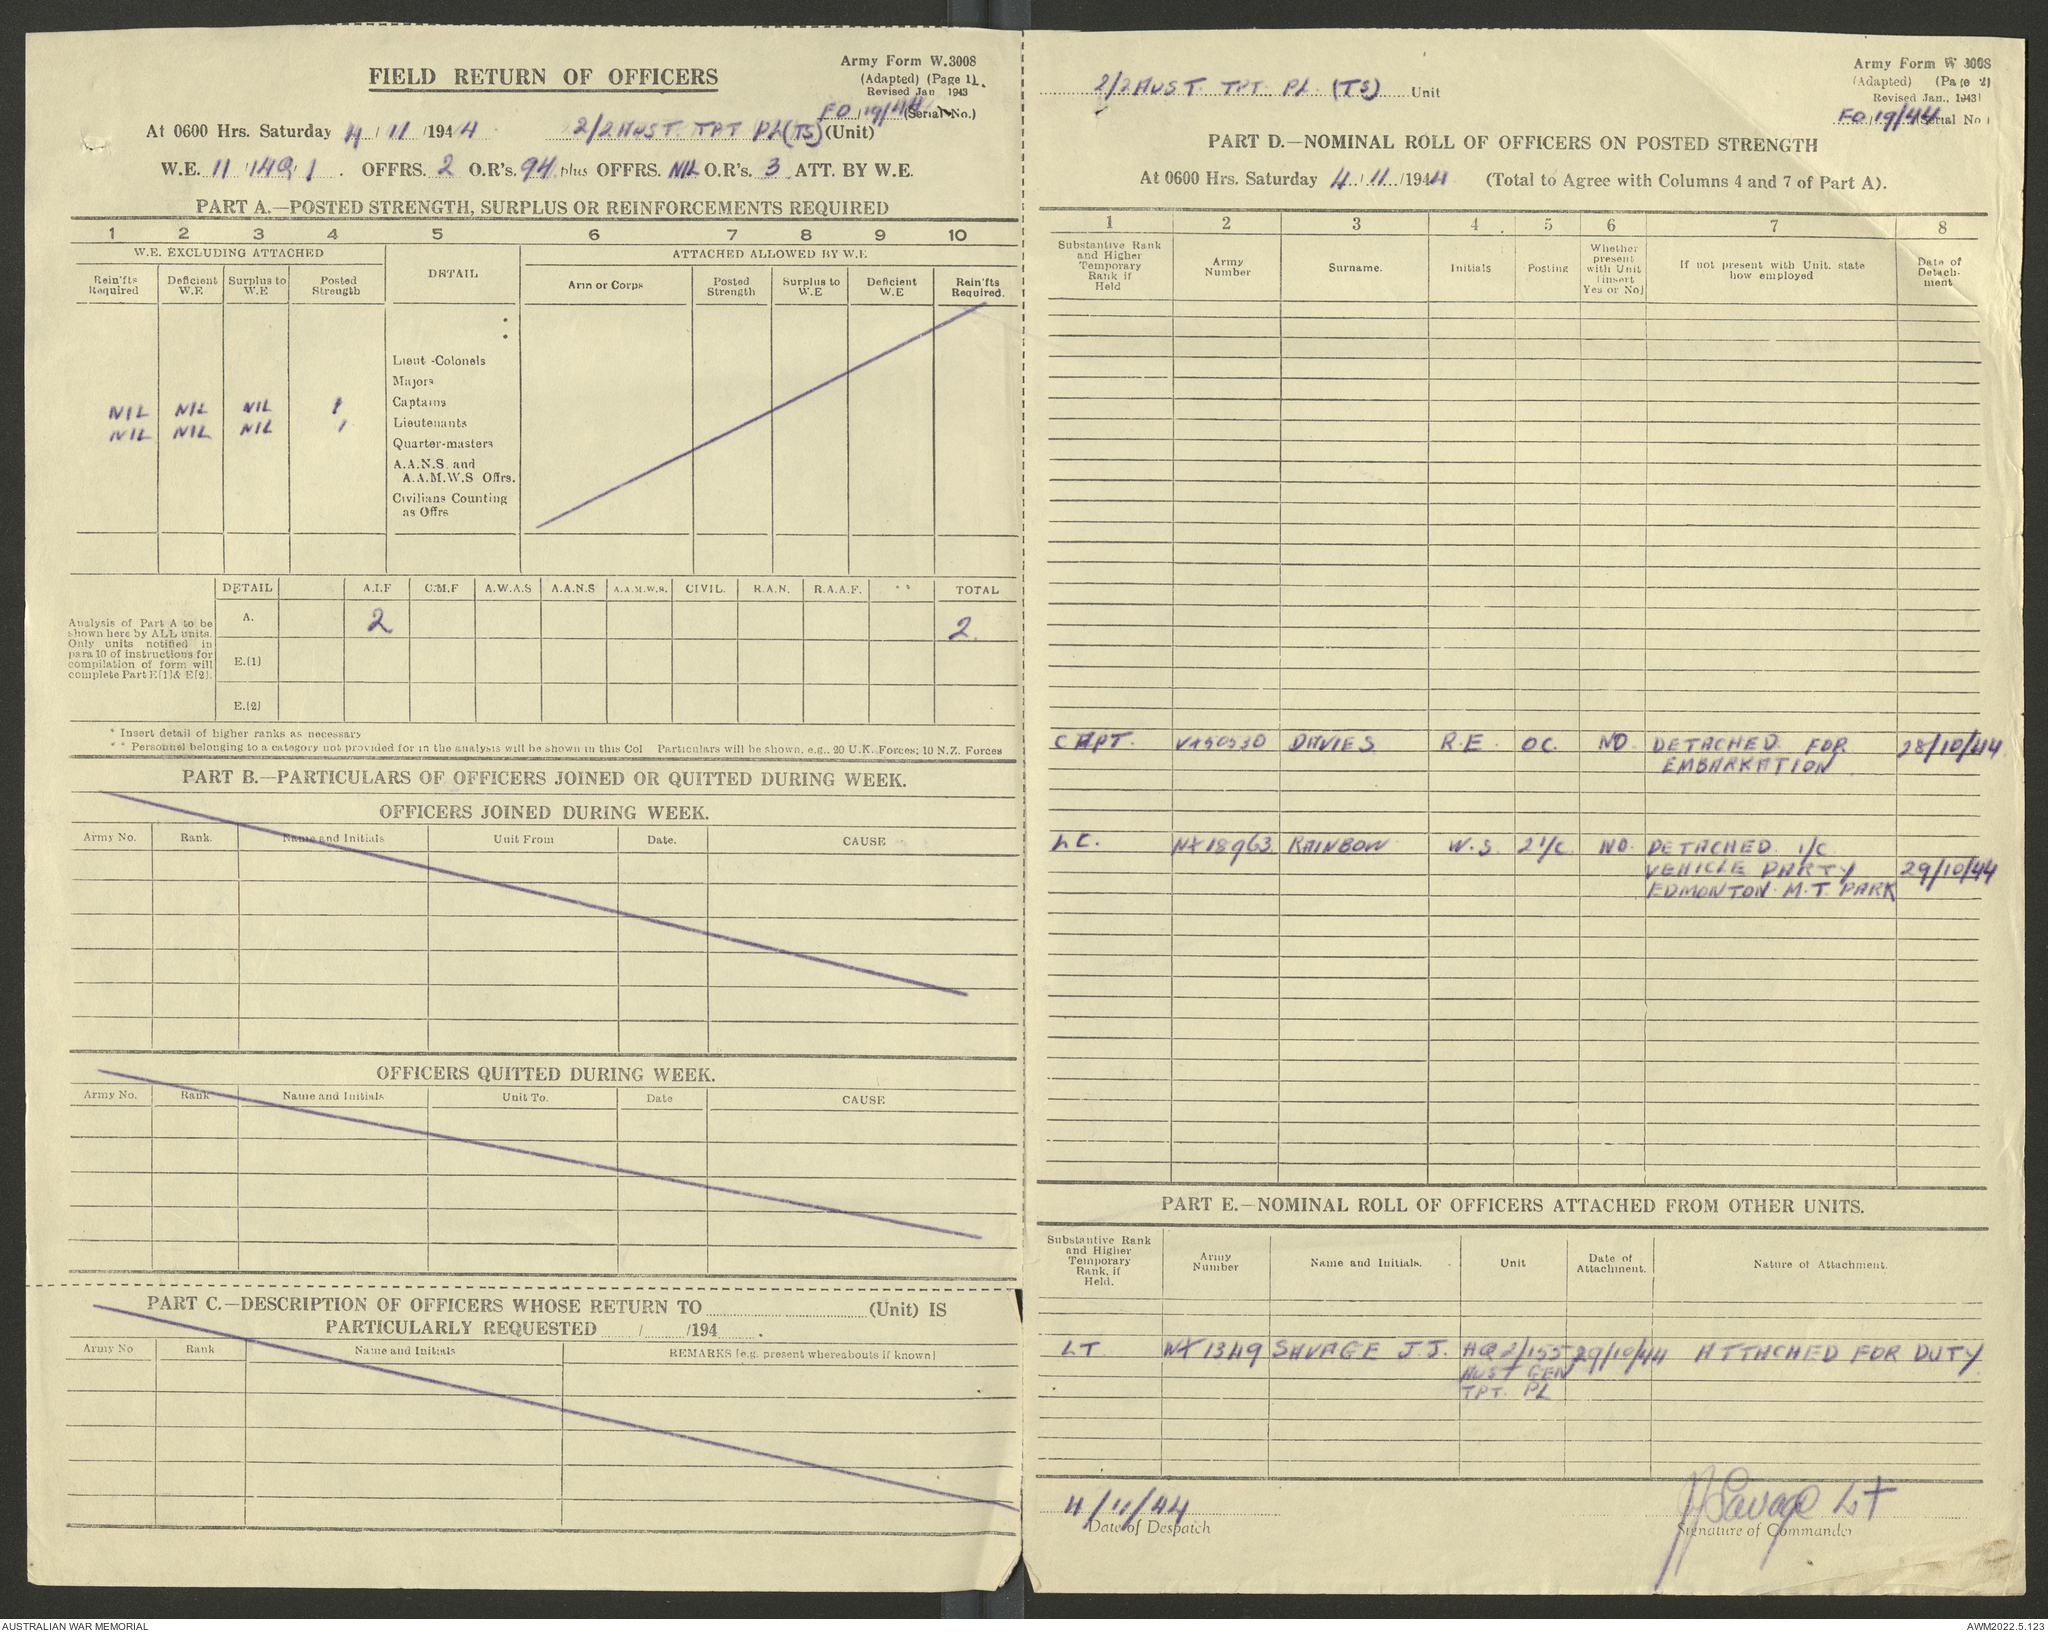 FIELD RETURN OF OFFICERS
Army Form W.3008
(Adapted) (Page 1).
Revised Jan 1943
FO/19/44 (Serial No.)
At 0600 Hrs. Saturday 4/11/1944 2/2 AUST TPT PL (TS) (Unit)
W.E. 11/149/1. OFFRS. 2 O.R's. 94 plus OFFRS. NIL O.R's. 3 ATT. BY W.E.
PART A.—POSTED STRENGTH, SURPLUS OR REINFORCEMENTS REQUIRED
1 2 3 4 5 6 7 8 9 10
W.E. EXCLUDING ATTACHED DETAIL ATTACHED ALLOWED BY W.E
Rein'fts Required Deficient W.E Surplus to W.E Posted Strength Arm or Corps Posted Strength Surplus to W.E Deficient W.E Rein'fts Required.
Lieut-Colonels
Majors
NIL NIL NIL 1 Captains
NIL NIL NIL 1 Lieutenants
Quarter-masters
A.A.N.S. and
A.A.M.W.S Offrs.
Civilians Counting
as Offrs
Analysis of Part A to be shown here by ALL units. Only units notified in para 10 of instructions for compilation of form will complete Part E(1) & E(2).
DETAIL A.I.F C.M.F A.W.A.S A.A.N.S A.A.M.W.S. CIVIL. R.A.N. R.A.A.F. ** TOTAL
A. 2 2
E.(1)
E.(2)
* Insert detail of higher ranks as necessary
** Personnel belonging to a category not provided for in the analysis will be shown in this Col Particulars will be shown, e.g., 20 U.K. Forces; 10 N.Z. Forces
PART B.—PARTICULARS OF OFFICERS JOINED OR QUITTED DURING WEEK.
OFFICERS JOINED DURING WEEK.
Army No. Rank. Name and Initials Unit From Date. CAUSE
OFFICERS QUITTED DURING WEEK.
Army No. Rank Name and Initials Unit To. Date CAUSE
PART C.—DESCRIPTION OF OFFICERS WHOSE RETURN TO (Unit) IS
PARTICULARLY REQUESTED / /194 .
Army No Rank Name and Initials REMARKS (e.g. present whereabouts if known)
2/2 AUST. TPT. PL. (TS) Unit
Army Form W 3008
(Adapted) (Page 2)
Revised Jan., 1943)
FO/19/44 (Serial No)
PART D.—NOMINAL ROLL OF OFFICERS ON POSTED STRENGTH
At 0600 Hrs. Saturday 4/11/1944 (Total to Agree with Columns 4 and 7 of Part A).
1 2 3 4 5 6 7 8
Substantive Rank and Higher Temporary Rank if Held Army Number Surname. Initials Posting Whether present with Unit (insert Yes or No) If not present with Unit, state how employed Date of Detachment
CAPT. DAVIES R.E. OC. NO. DETACHED FOR 28/10/44
EMBARKATION
NX18963 RAINBOW W.S. 2 I/C NO. DETACHED I/C
VEHICLE PARTY 29/10/44
EDMONTON M.T. PARK
PART E.—NOMINAL ROLL OF OFFICERS ATTACHED FROM OTHER UNITS.
Substantive Rank and Higher Temporary Rank, if Held. Army Number Name and Initials. Unit Date of Attachment. Nature of Attachment.
LT NX1349 SAVAGE J.J. HQ 2/155 29/10/44 ATTACHED FOR DUTY
AUST GEN
TPT. PL
4/11/44 JJ Savage Lt
Date of Despatch Signature of Commander
AUSTRALIAN WAR MEMORIAL AWM2022.5.123